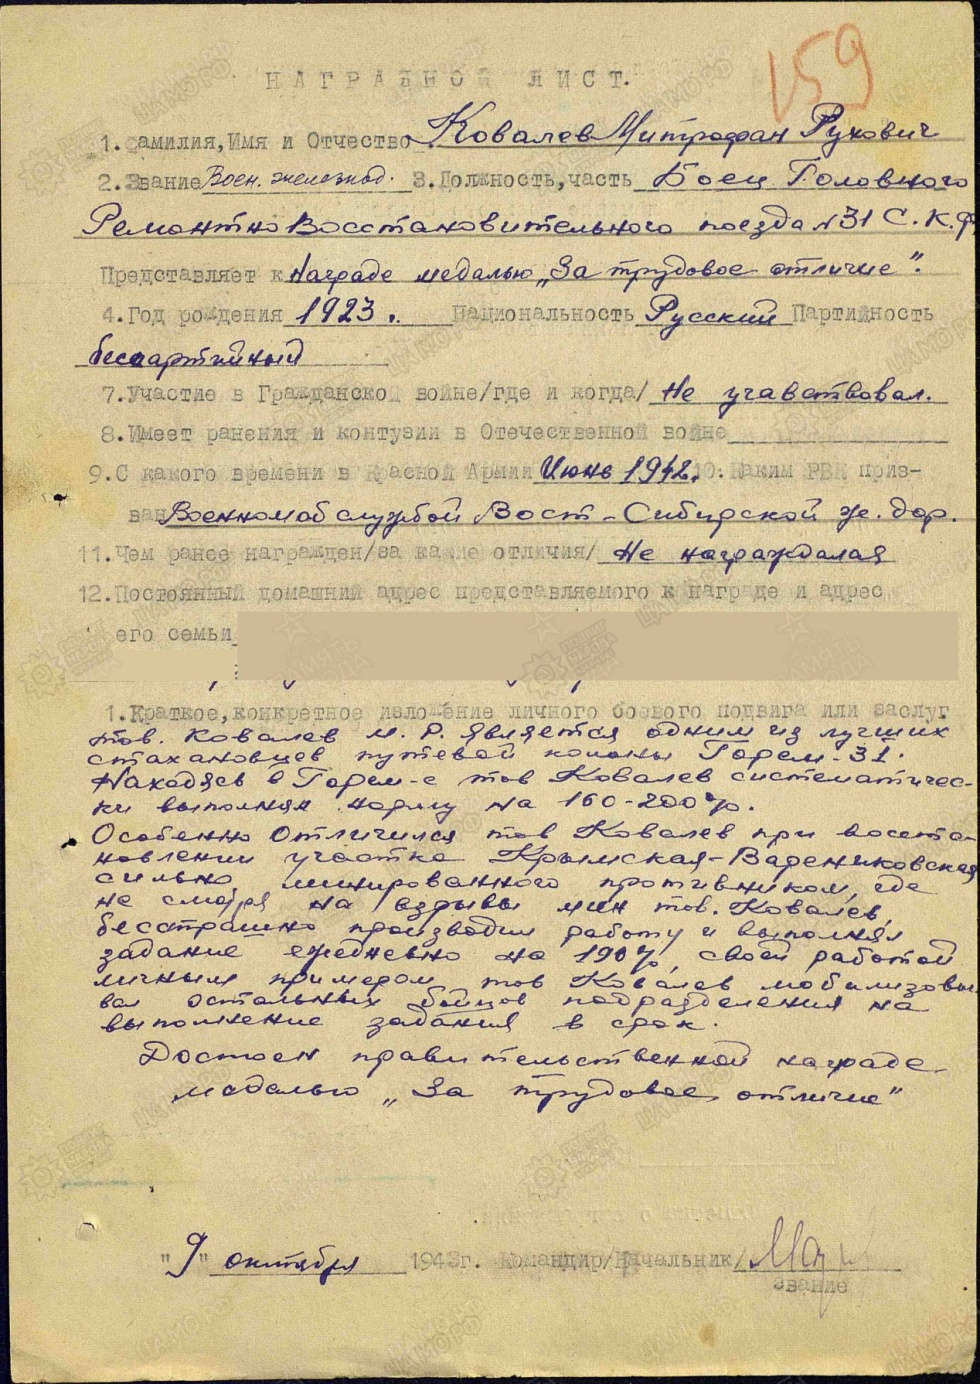 159
НАГРАДНОЙ ЛИСТ.
1. Фамилия, Имя и Отчество Ковалев Митрофан Рукович
2. Звание Воен. железнод. 3. Должность, часть Боец Головного
Ремонтно Восстановительного поезда №31 С.К.Ф.
Представляет к Награде медалью „За трудовое отличие".
4. Год рождения 1923 г. Национальность Русский Партийность
беспартийный
7. Участие в Гражданской войне/где и когда/ Не учавствовал.
8. Имеет ранения и контузии в Отечественной войне
9. С какого времени в Красной Армии Июнь 1942. 10. Каким РВК приз-
ван Военномоб службой Вост-Сибирской ж. дор.
11. Чем ранее награжден/за какие отличия/ Не награждался
12. Постоянный домашний адрес представляемого к награде и адрес
его семьи
1. Краткое, конкретное изложение личного боевого подвига или заслуг
тов. Ковалев М. Р. является одним из лучших
стахановцев путевой колоны Горем-31.
Находясь в Горем-е тов Ковалев систематичес-
ки выполнял норму на 160-200%.
Особенно Отличился тов Ковалев при восста-
новлении участка Крымская-Варениковская
сильно минированного противником, где
не смотря на взрывы мин тов. Ковалев,
бесстрашно производил работу и выполнял
задание ежедневно на 190%, своей работой
личным примером тов Ковалев мобилизовы-
вал остальных бойцов подразделения на
выполнение задания в срок.
Достоен правительственной награде
медалью „За трудовое отличие"
"9" октября 1943г. Командир/Начальник/
звание